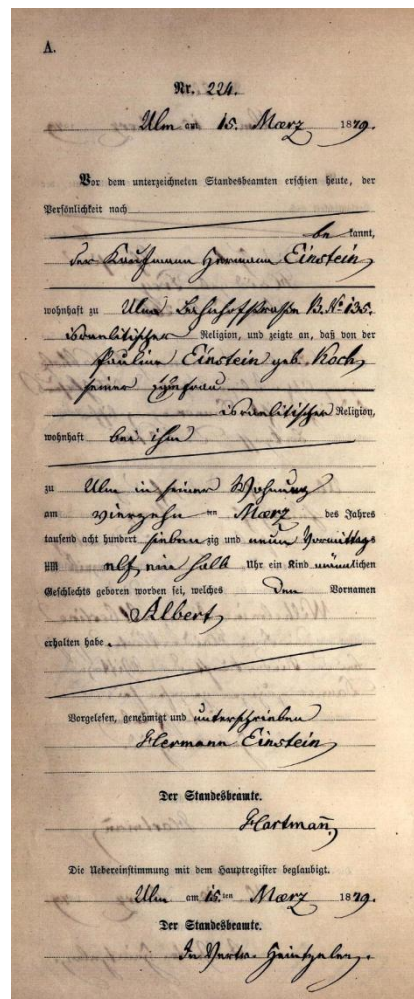 A.
Nr. 224.
Ulm am 15. Maerz 1879.
Vor dem unterzeichneten Standesbeamten erschien heute, der
Persönlichkeit nach
be kannt,
der Kaufmann Hermann Einstein
wohnhaft zu Ulm Bahnhofstraße B. No 135.
israelitischer Religion, und zeigte an, daß von der
Pauline Einstein geb. Koch,
seiner Ehefrau
israelitischer Religion,
wohnhaft bei ihm
zu Ulm in seiner Wohnung
am vierzehn ten Maerz des Jahres
tausend acht hundert sieben zig und neun Vormittags
um elf ein halb Uhr ein Kind männlichen
Geschlechts geboren worden sei, welches den Vornamen
Albert
erhalten habe.
Vorgelesen, genehmigt und unterschrieben
Hermann Einstein
Der Standesbeamte.
Hartmann̄
Die Uebereinstimmung mit dem Hauptregister beglaubigt.
Ulm am 15. ten Maerz 1879.
Der Standesbeamte.
In Vertr. Heintzeler.